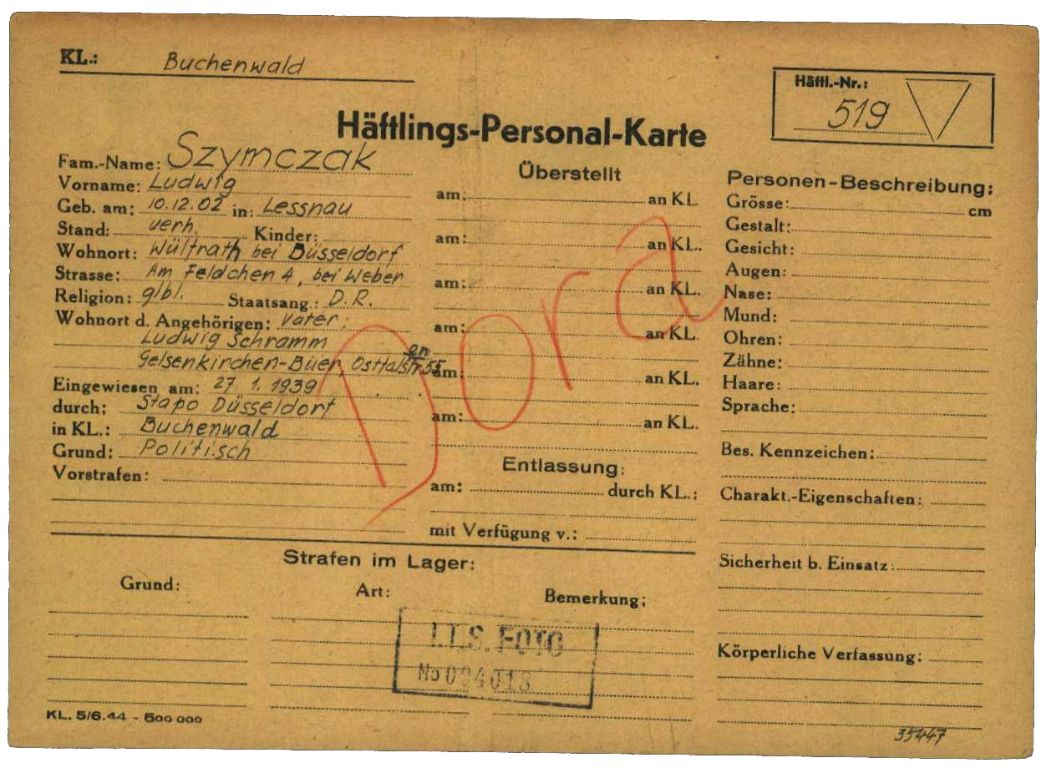 KL.: Buchenwald
Häftl.-Nr.:
519
Häftlings-Personal-Karte
Fam.-Name: Szymczak
Vorname: Ludwig
Geb. am: 10.12.02 in: Lessnau
Stand: verh. Kinder:
Wohnort: Wülfrath bei Düsseldorf
Strasse: Am Feldchen 4, bei Weber
Religion: glbl. Staatsang.: D.R.
Wohnort d. Angehörigen: Vater:
Ludwig Schramm
Gelsenkirchen-Büer, 
Eingewiesen am: 27.1.1939
durch: Stapo Düsseldorf
in KL.: Buchenwald
Grund: Politisch
Vorstrafen:
Überstellt
am: an KL
am: an KL.
am: an KL.
am: an KL
am: an KL.
am: an KL.
Entlassung:
am: durch KL.:
mit Verfügung v.:
Dora
Personen-Beschreibung:
Grösse: cm
Gestalt:
Gesicht:
Augen:
Nase:
Mund:
Ohren:
Zähne:
Haare:
Sprache:
Bes. Kennzeichen:
Charakt.-Eigenschaften:
Sicherheit b. Einsatz:
Körperliche Verfassung:
Strafen im Lager:
Grund: Art: Bemerkung:
I.T.S. FOTO
No 094018
KL. 5/6.44 - 500 000
35447